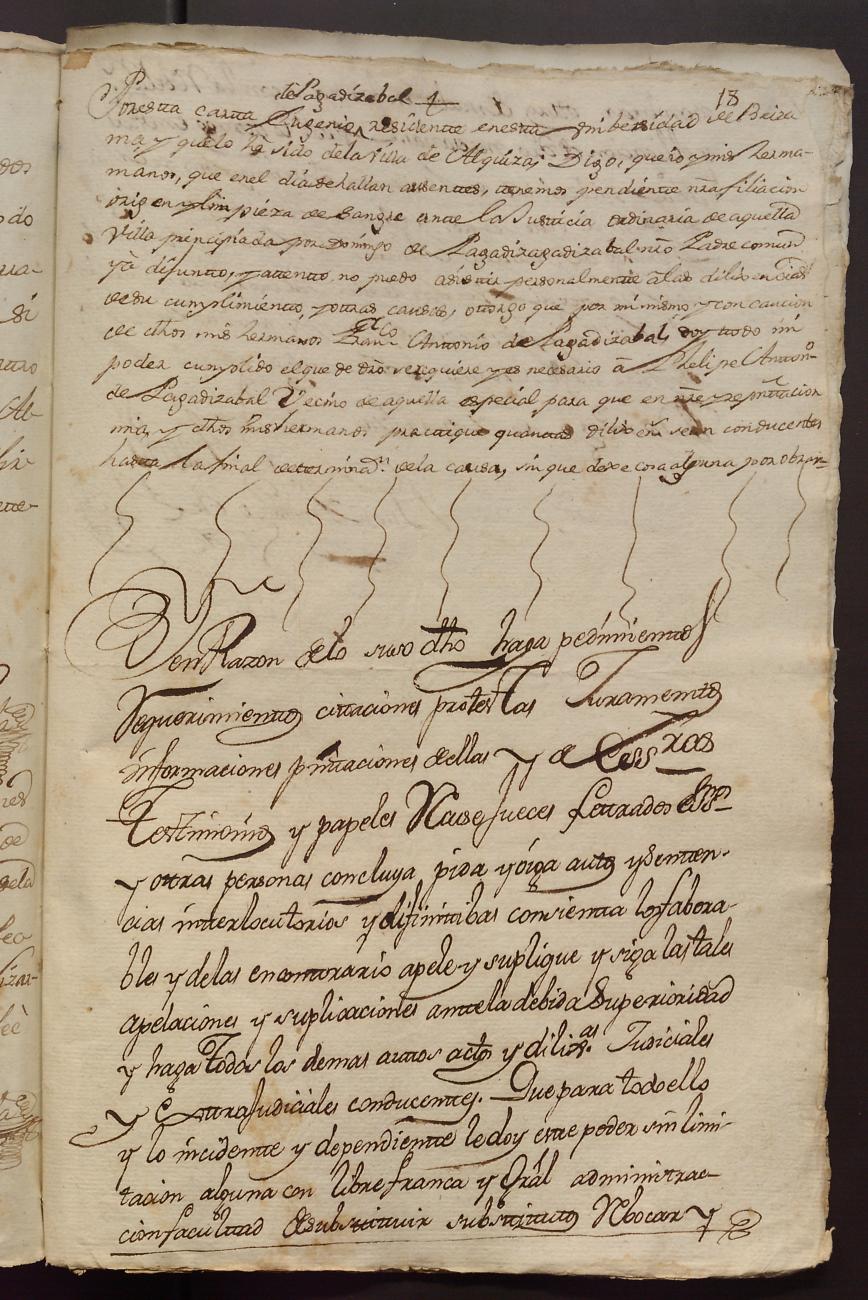 18
de Lagadizabal
Por esta carta Eugenio, residente en esta Unibersidad de Beiza
ma, y que lo hè sido de la Villa de Alquiza; Digo, que io y mis herma-
manos, que en el dia se hallan ausentes, tenemos pendiente nra filiacion
origen y limpieza de Sangre ante la Justicia ordinaria de aquella
Villa principiada por Domingo de Lagadizagadizabal nro Padre comun
yà difunto, y attento no puedo asistir personalmente â las dilixencias
de su cumplimiento, y otras causas, ottorgo que por mi mismo y con caucion
de dhos mis hermanos Franco Anttonio de Lagadizabal, doy ttodo mi
poder cumplido el que de dro se requiere y es necesario â Phelipe Antton.o
de Lagadizabal Vecino de aquella especial para que en nre y representtacion
mia, y dhos mis hermanos practtique quanttas dilixas sean conducentes
hastta la final determinaon de la causa, sin que dexe cosa alguna por obrar
Y en Razon delo suso dho haga pedimientos
Requerimientos cittaciones protesttas Juramentos
informaciones presnttaciones dellas y de Essras
Testtimonios y papeles Recuse Jueces Lettrados Essnos
y ottras personas concluya pida y óiga auttos y Senten-
cias interlocutorios y difinitibas consientta los fabora-
bles y delas en conttrario apele y suplique y siga las tales
apelaciones y suplicaciones antte la debida Superioridad
y haga Todos los demas auttos acttos y dilixas Judiciales
y Exttrajudiciales conducenttes. Que para ttodo ello
y lo incidentte y dependientte le doy estte poder sin limi-
tacion alguna con libre franca y Gral administrac-
cion facultad de substtituir substtitutos Rebocar y